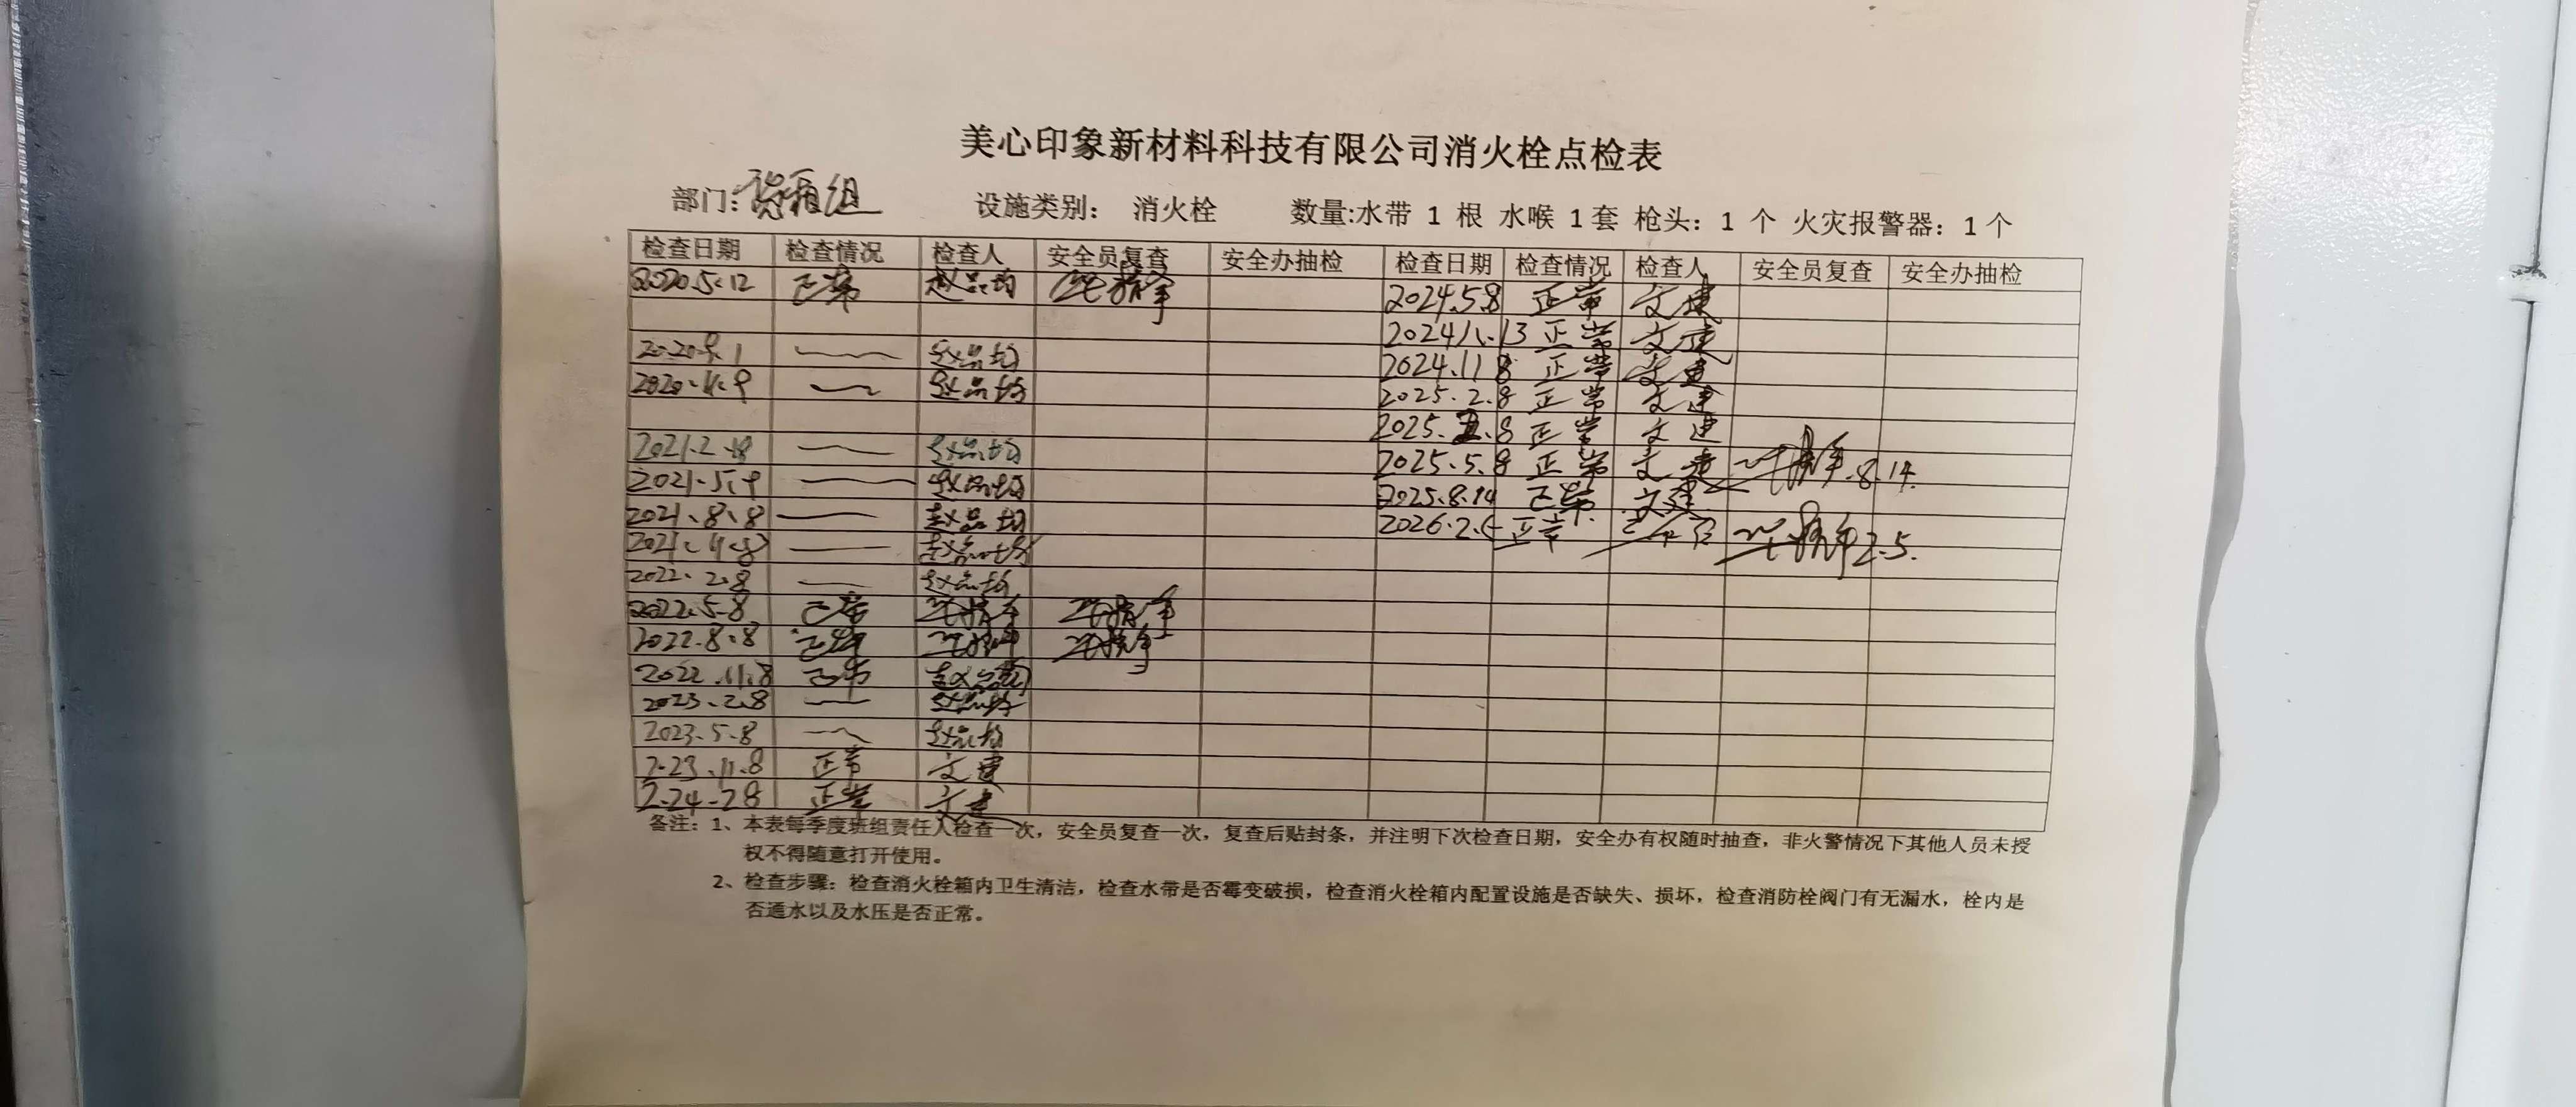 美心印象新材料科技有限公司消火栓点检表
部门: 组 设施类别： 消火栓 数量:水带 1 根 水喉 1套 枪头：1 个 火灾报警器：1个
检查日期 检查情况 检查人 安全员复查 安全办抽检 检查日期 检查情况 检查人 安全员复查 安全办抽检
2020.5.12 正常 赵品均
2024.5.8 正常 文建
2024 13 正常 文建
赵品均
2024.11 8 正常 文建
2020.11.9 赵品均
2025.2.8 正常 文建
2025. .8 正常 文建
2021.2.18 赵品均
2025.5.8 正常 文建 8.14.
2021.5.9 赵品均
2025.8.14 正常 文建
2021.8.8 赵品均
2026.2.5 正常 2.5.
2021.11.8 赵品均
2022.2.8 赵品均
2022.5.8 正常
2022.8.8 正常
2022.11.8 正常 赵品均
2023.2.8 赵品均
2023.5.8 赵品均
2.23.11.8 正常 文建
2.24-28 正常 文建
备注：1、本表每季度班组责任人检查一次，安全员复查一次，复查后贴封条，并注明下次检查日期，安全办有权随时抽查，非火警情况下其他人员未授
权不得随意打开使用。
2、检查步骤：检查消火栓箱内卫生清洁，检查水带是否霉变破损，检查消火栓箱内配置设施是否缺失、损坏，检查消防栓阀门有无漏水，栓内是
否通水以及水压是否正常。